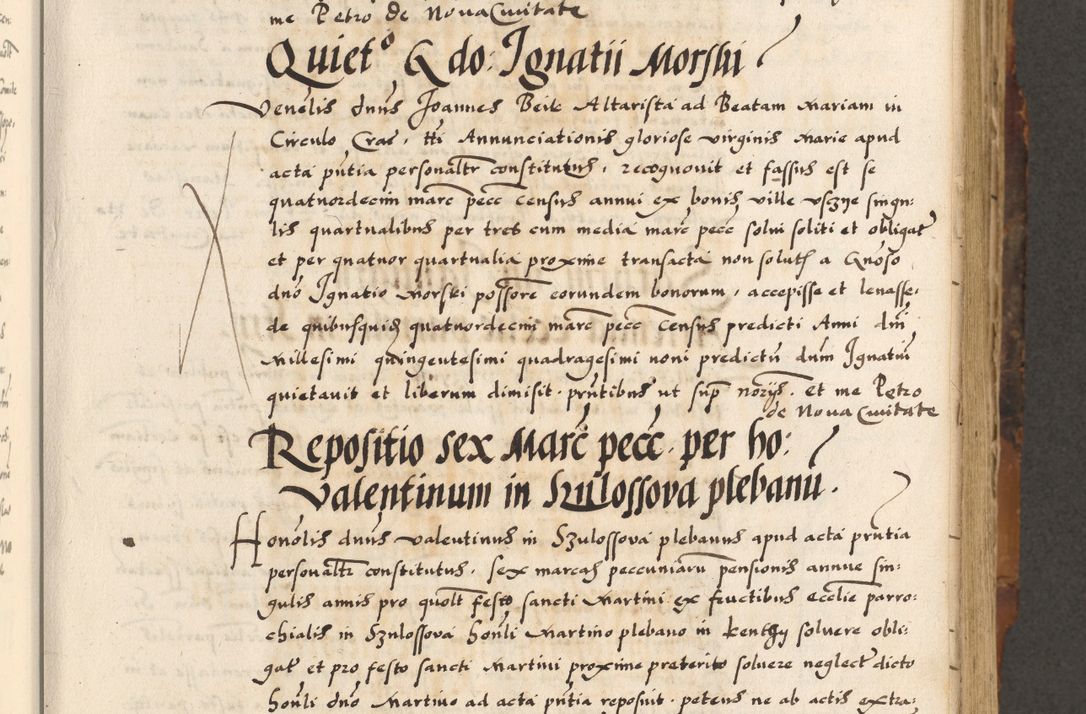 me Petro de Nova Civitate
Quiet^o G do: Ignatii Morski
Venēlis dnūs Joannes Beik Altarista ad Beatam Mariam in
Circulo Crac. tti Annunciationis gloriose virginis Marie apud
acta pūtia personalr̄ constitutus, recognovit et fassus est se
quatuordecim marc̄ pecc̄ census annui ex bonis ville singu:
lis quartualibus per tres cum media marc̄ pecc̄ solvi soliti et obligat
et per quatuor quartualia proxime transacta non soluti a Gnōso
dnō Ignatio Morski possōre eorundem bonorum, accepisse et levasse.
de quibusquidem quatuordecim marc̄ pecc̄ census predicti Anni dnī
Millesimi quingentesimi quadragesimi noni predictū dnūm Ignatiū
quietavit et liberum dimisit. prn̄tibus ut sup̄ nor̄ijs. Et me Petro
de Nova Civitate
Repositio sex Marc̄ pecc̄. per ho:
Valentinum in Szulossova plebanū.
Honōlis dnūs Valentinus in Szulossova plebanus apud acta prn̄tia
personalr̄ constitutus. sex marcas peccuniarū pensionis annue sin:
gulis annis pro quolt̄ festo sancti Martini ex fructibus ecclīe parro:
chialis in Szulossova honl̄i Martino plebano in kenthy solvere obli:
gat̄ et pro festo sancti Martini proxime preterito solvere neglect dicto
honl̄i dnō Martino ad acta pūtia reposuit. petens ne ab actis extra: